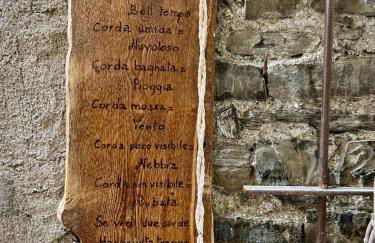 Bell tempo
Corda umida =
Nuvoloso
Corda bagnata =
Pioggia
Corda mossa =
Vento
Corda poco visibile =
Nebbia
Corda non visibile =
Rubata
Se vedi due corde